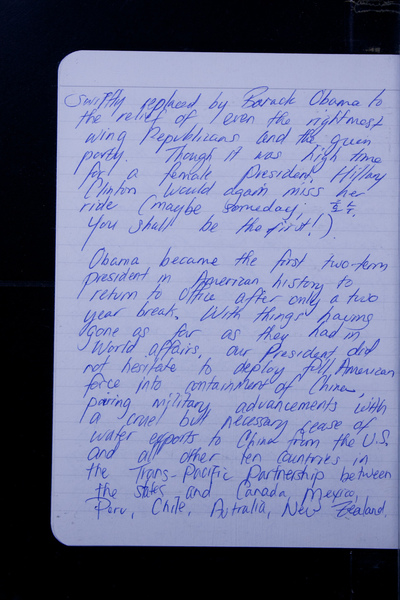 swiftly replaced by Barack Obama to
the relief of even the rightmost
wing Republicans and the green
party. Though it was high time
for a female president, Hillary
Clinton would again miss her
ride (maybe someday;
You shall be the first!)
Obama became the first two-term
president in American history to
return to office after only a two
year break. With things having
gone as far as they had in
World affairs, our President did
not hesitate to deploy full American
force into containment of China,
pairing military advancements with
a cruel but necessary cease of
water exports to China from the U.S.
and all other ten countries in
the Trans-Pacific Partnership between
the states and Canada, Mexico,
Peru, Chile, Autralia, New Zealand,